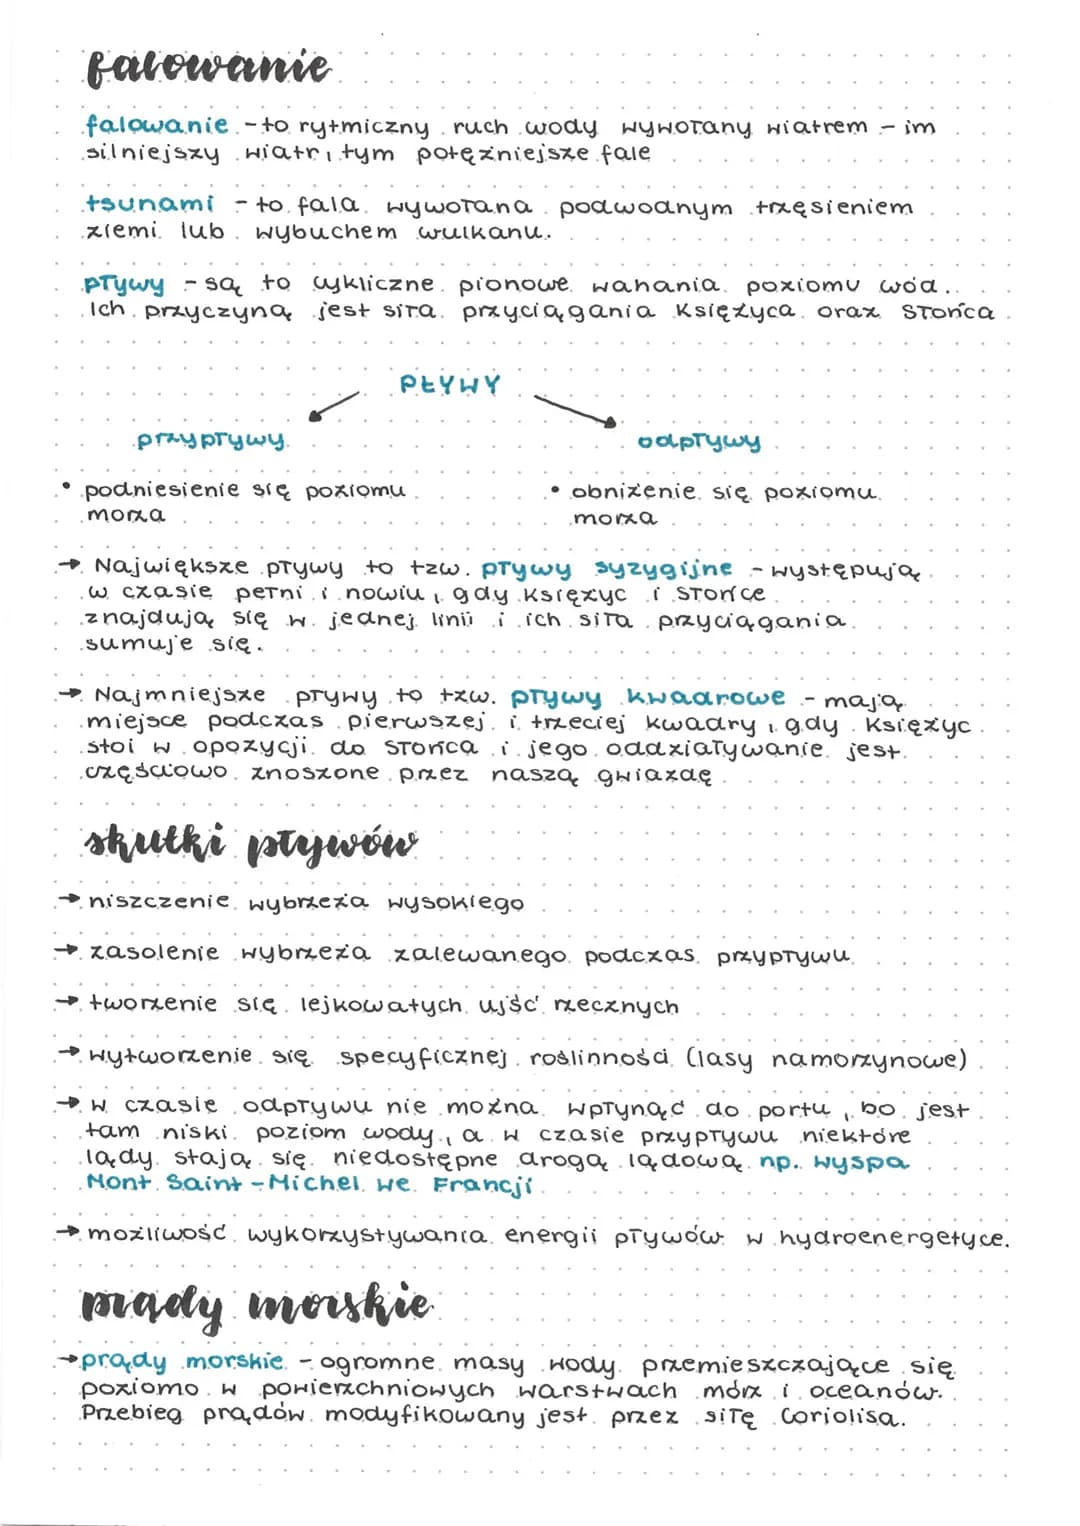 falowanie
falowanie - to rytmiczny ruch wody wywołany wiatrem - im
silniejszy wiatr, tym potężniejsze fale
tsunami - to fala wywołana podwodnym trzęsieniem
ziemi lub wybuchem wulkanu.
pływy - są to cykliczne pionowe wahania poziomu wód.
Ich przyczyną jest siła przyciągania Księżyca oraz Słońca
PŁYWY
przypływy
odpływy
• podniesienie się poziomu
morza
• obniżenie się poziomu
morza
→ Największe pływy to tzw. pływy syzygijne - występują
w czasie pełni i nowiu, gdy księżyc i słońce
znajdują się w jednej linii i ich siła przyciągania
sumuje się.
→ Najmniejsze pływy to tzw. pływy kwadrowe - mają
miejsce podczas pierwszej i trzeciej kwadry, gdy Księżyc
stoi w opozycji do Słońca i jego oddziaływanie jest
częściowo znoszone przez naszą gwiazdę
skutki pływów
→ niszczenie wybrzeża wysokiego
→ zasolenie wybrzeża zalewanego podczas przypływu
→ tworzenie się lejkowatych ujść rzecznych
→ wytworzenie się specyficznej roślinności (lasy namorzynowe)
→ w czasie odpływu nie można wpłynąć do portu, bo jest
tam niski poziom wody, a w czasie przypływu niektóre
lądy stają się niedostępne drogą lądową np. wyspa
Mont Saint-Michel we Francji
→ możliwość wykorzystywania energii pływów w hydroenergetyce.
prądy morskie
→ prądy morskie - ogromne masy wody przemieszczające się
poziomo w powierzchniowych warstwach mórz i oceanów.
Przebieg prądów modyfikowany jest przez siłę Coriolisa.